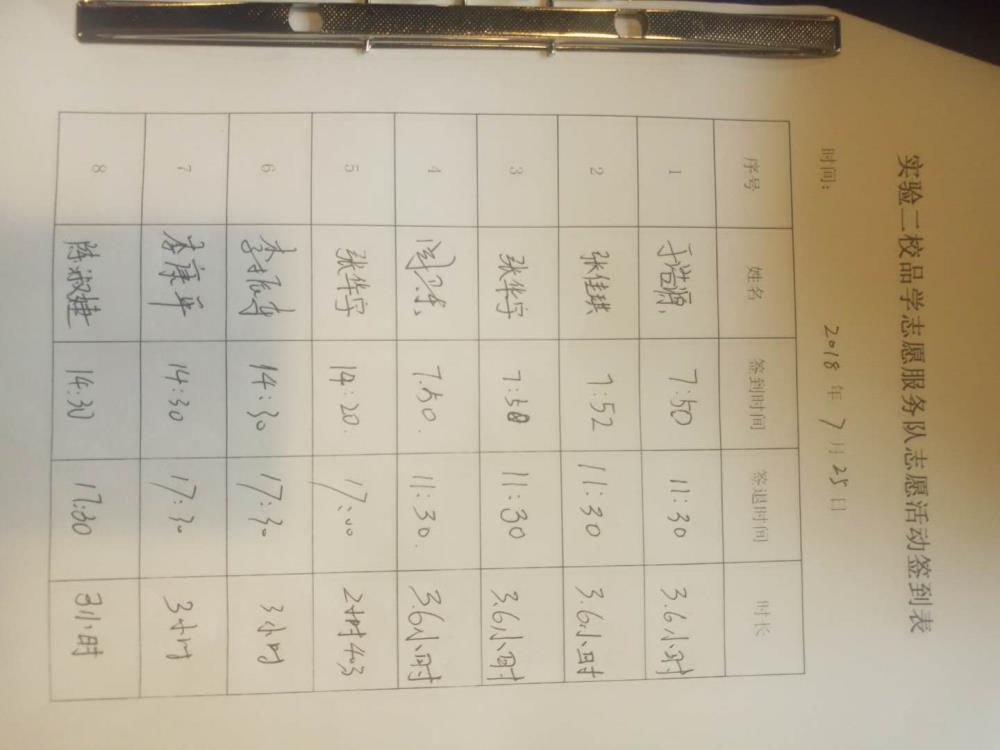 实验二校品学志愿服务队志愿活动签到表
时间： 2018年7月25日
序号 姓名 签到时间 签退时间 时长
1 于浩源 7:50 11:30 3.6小时
2 张佳琪 7:52 11:30 3.6小时
3 张华宇 7:50 11:30 3.6小时
4 7.50. 11:30. 3.6小时
5 张华宇 14:20. 17:00 2小时40分
6 李振 14:30 17:30 3小时
7 李康平 14:30 17:30 3小时
8 陈淑婕 14:30 17:30 3小时